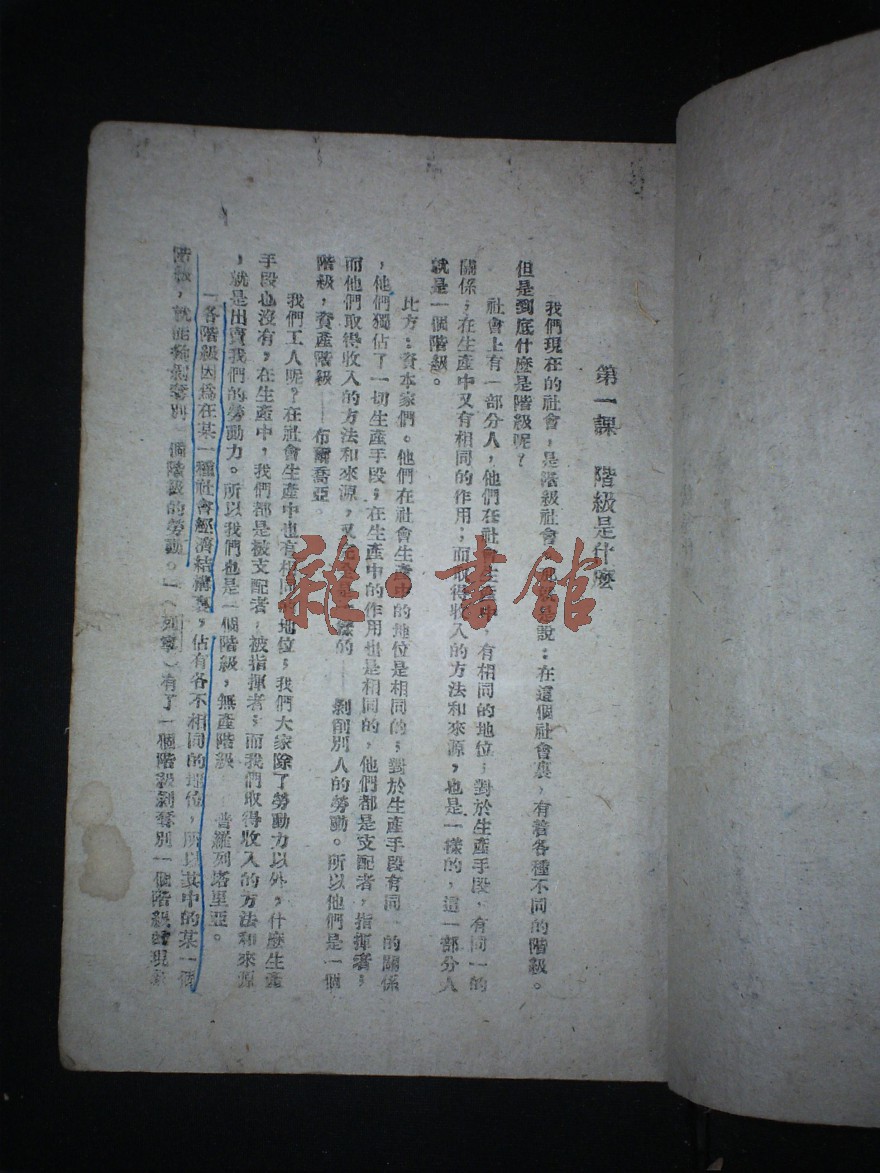 第一課　階級是什麼
我們現在的社會，是階級社會，也就是說：在這個社會裏，有着各種不同的階級。
但是到底什麼是階級呢？
社會上有一部分人，他們在社會生產中，有相同的地位；對於生產手段，有同一的
關係；在生產中又有相同的作用；而取得收入的方法和來源，也是一樣的，這一部分人
就是一個階級。
比方：資本家們。他們在社會生產中的地位是相同的；對於生產手段有同一的關係
，他們獨佔了一切生產手段；在生產中的作用也是相同的，他們都是支配者，指揮者；
而他們取得收入的方法和來源，又　樣的——剝削別人的勞動。所以他們是一個
階級，資產階級——布爾喬亞。
我們工人呢？在社會生產中也有相同的地位；我們大家除了勞動力以外，什麼生產
手段也沒有，在生產中，我們都是被支配者，被指揮者；而我們取得收入的方法和來源
，就是出賣我們的勞動力。所以我們也是一個階級，無產階級——普羅列塔里亞。
「各階級因爲在某一種社會經濟結構裏，佔有各不相同的地位，所以其中的某一個
階級，就能　剝奪別一個階級的勞動。」（列寧）有了一個階級剝奪別一個階級的現
雜·書館